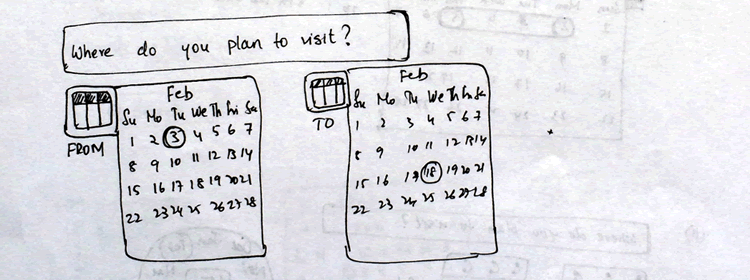 Where do you plan to visit?
Feb
Su Mo Tu We Th Fri Sa
1 2 3 4 5 6 7
8 9 10 11 12 13 14
15 16 17 18 19 20 21
22 23 24 25 26 27 28
FROM
Feb
Su Mo Tu We Th Fri Sa
1 2 3 4 5 6 7
8 9 10 11 12 13 14
15 16 17 18 19 20 21
22 23 24 25 26 27 28
TO